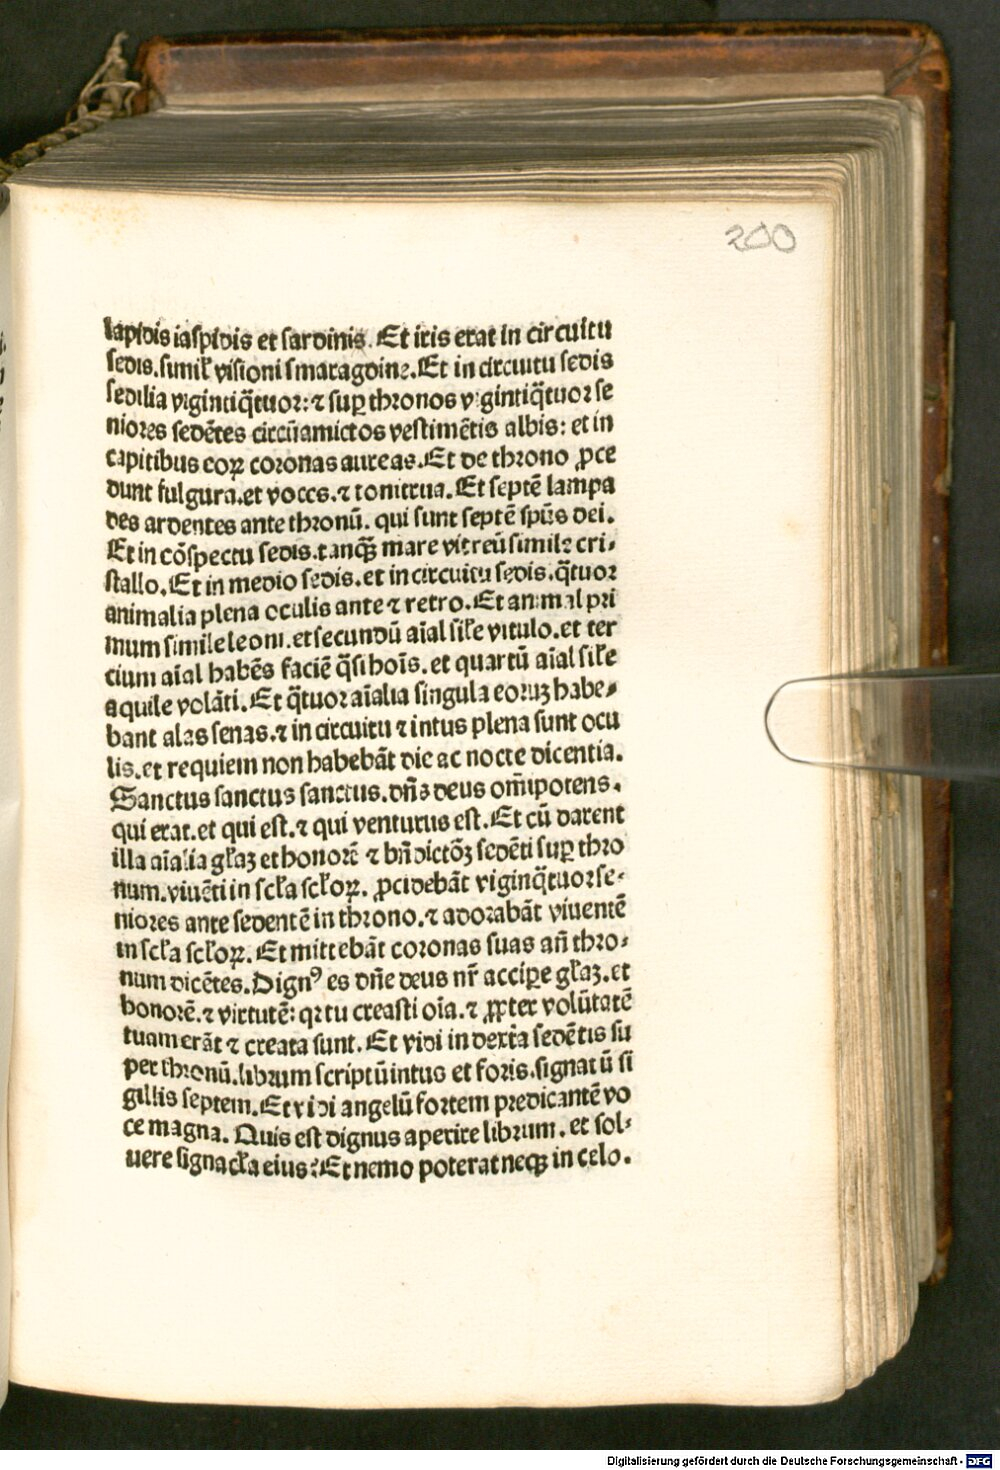 200
lapidis iaspidis et sardinis. Et iris erat in circuitu
sedis. simil̄ visioni smaragdine. Et in circuitu sedis
sedilia vigintiq̄tuor: ⁊ suꝑ thronos vigintiq̄tuor se
niores sedētes circūamictos vestimētis albis: et in
capitibus coꝝ coronas aureas. Et de throno ꝓce
dunt fulgura. et voces. ⁊ tonitrua. Et septē lampa
des ardentes ante thronū. qui sunt septē spūs dei.
Et in cōspectu sedis. tanq̄ꝫ mare vitreū simile cri⸗
stallo. Et in medio sedis. et in circuitu sedis. q̄tuor
animalia plena oculis ante ⁊ retro. Et animal pri
mum simile leoni. et secundū aīal sil̄e vitulo. et ter
cium aīal habēs faciē q̄si hoīs. et quartū aīal sil̄e
aquile volāti. Et q̄tuor aīalia singula eoruꝫ habe⸗
bant alas senas. ⁊ in circuitu ⁊ intus plena sunt ocu
lis. et requiem non habebāt die ac nocte dicentia.
Sanctus sanctus sanctus. dn̄s deus om̄ipotens.
qui erat. et qui est. ⁊ qui venturus est. Et cū darent
illa aīalia gl̄aꝫ et honorē ⁊ bn̄dictōꝫ sedēti suꝑ thro
num. viuēti in scl̄a scl̄oꝝ. ꝓcidebāt viginq̄tuor se⸗
niores ante sedentē in throno. ⁊ adorabāt viuentē
in scl̄a scl̄oꝝ. Et mittebāt coronas suas an̄ thro⸗
num dicētes. Dignꝰ es dn̄e deus nr̄ acciꝑe gl̄aꝫ. et
honorē. ⁊ virtutē: qꝛ tu creasti oīa. ⁊ ꝓpter volūtatē
tuam erāt ⁊ creata sunt. Et vidi in dext̄a sedētis su
per thronū. librum scriptū intus et foris. signatū si
gillis septem. Et vidi angelū fortem predicantē vo
ce magna. Quis est dignus aperire librum. et sol⸗
uere signacl̄a eius? Et nemo poterat neqꝫ in celo.
Digitalisierung gefördert durch die Deutsche Forschungsgemeinschaft - DFG